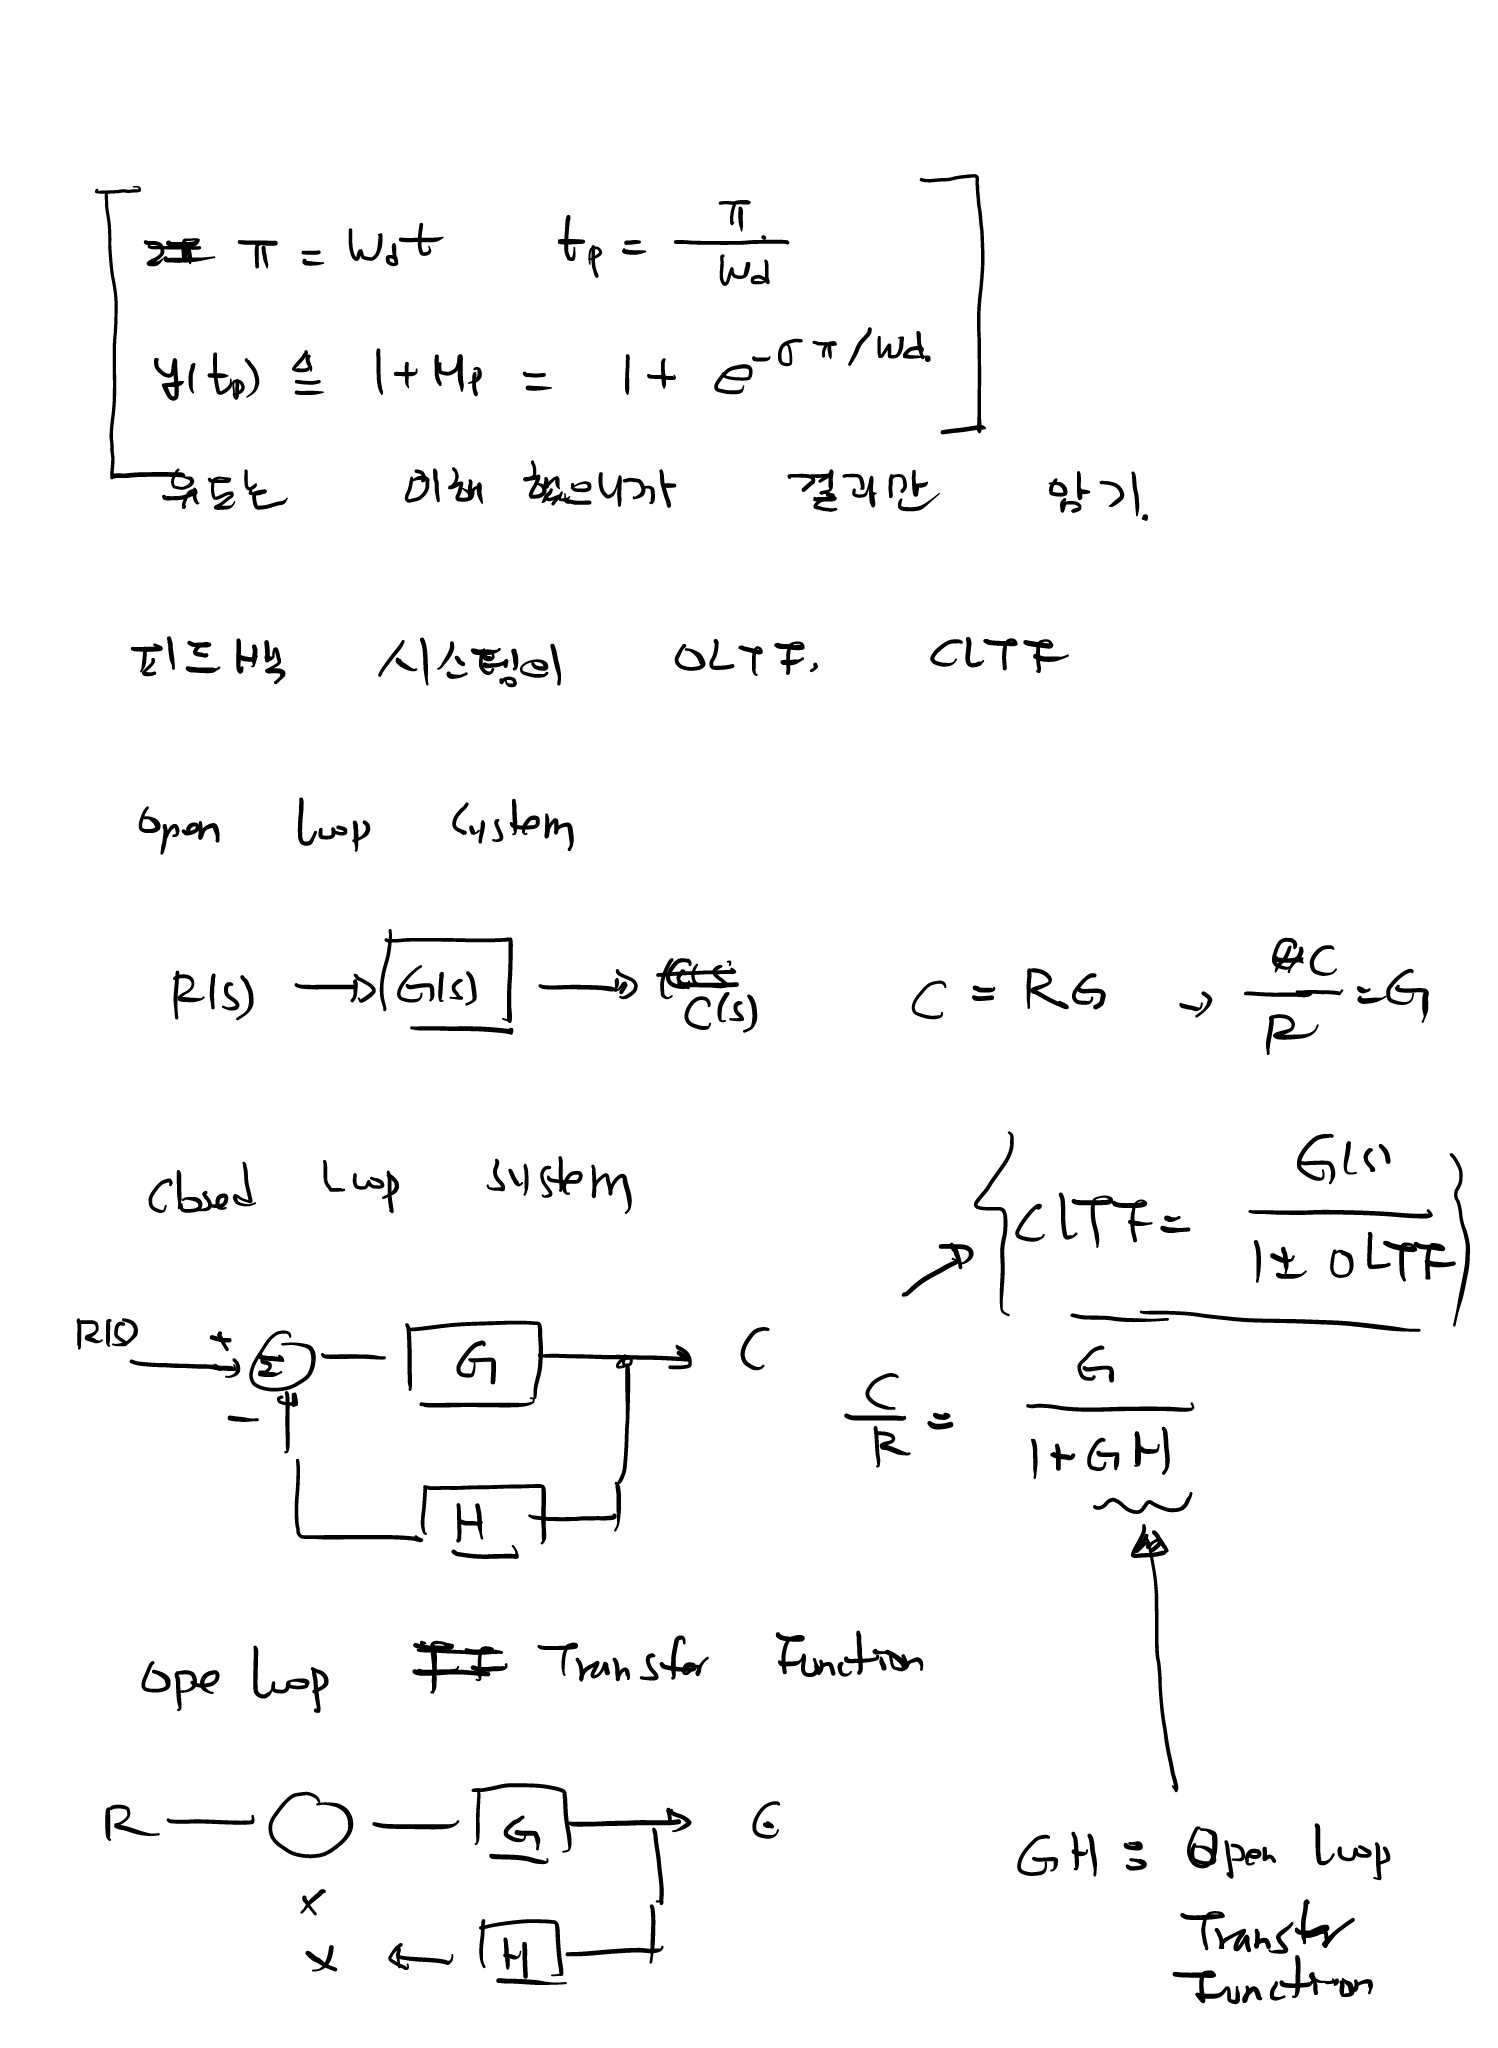 π = Wdt tp = π / Wd
y(tp) ≜ 1+Mp = 1+ e^-σπ/Wd.
유도는 이해 했으니까 결과만 암기.
피드백 시스템이 OLTF, CLTF
Open Loop System
R(s) → G(s) → C(s) C = RG → C / R = G
Closed Loop system
CLTF = G(s) / 1± OLTF
R(s) + Σ G C
-
H
C / R = G / 1+GH
Ope Loop Transfer Function
R G C
x
x ← H
GH ≡ Open Loop
Transfer
Function